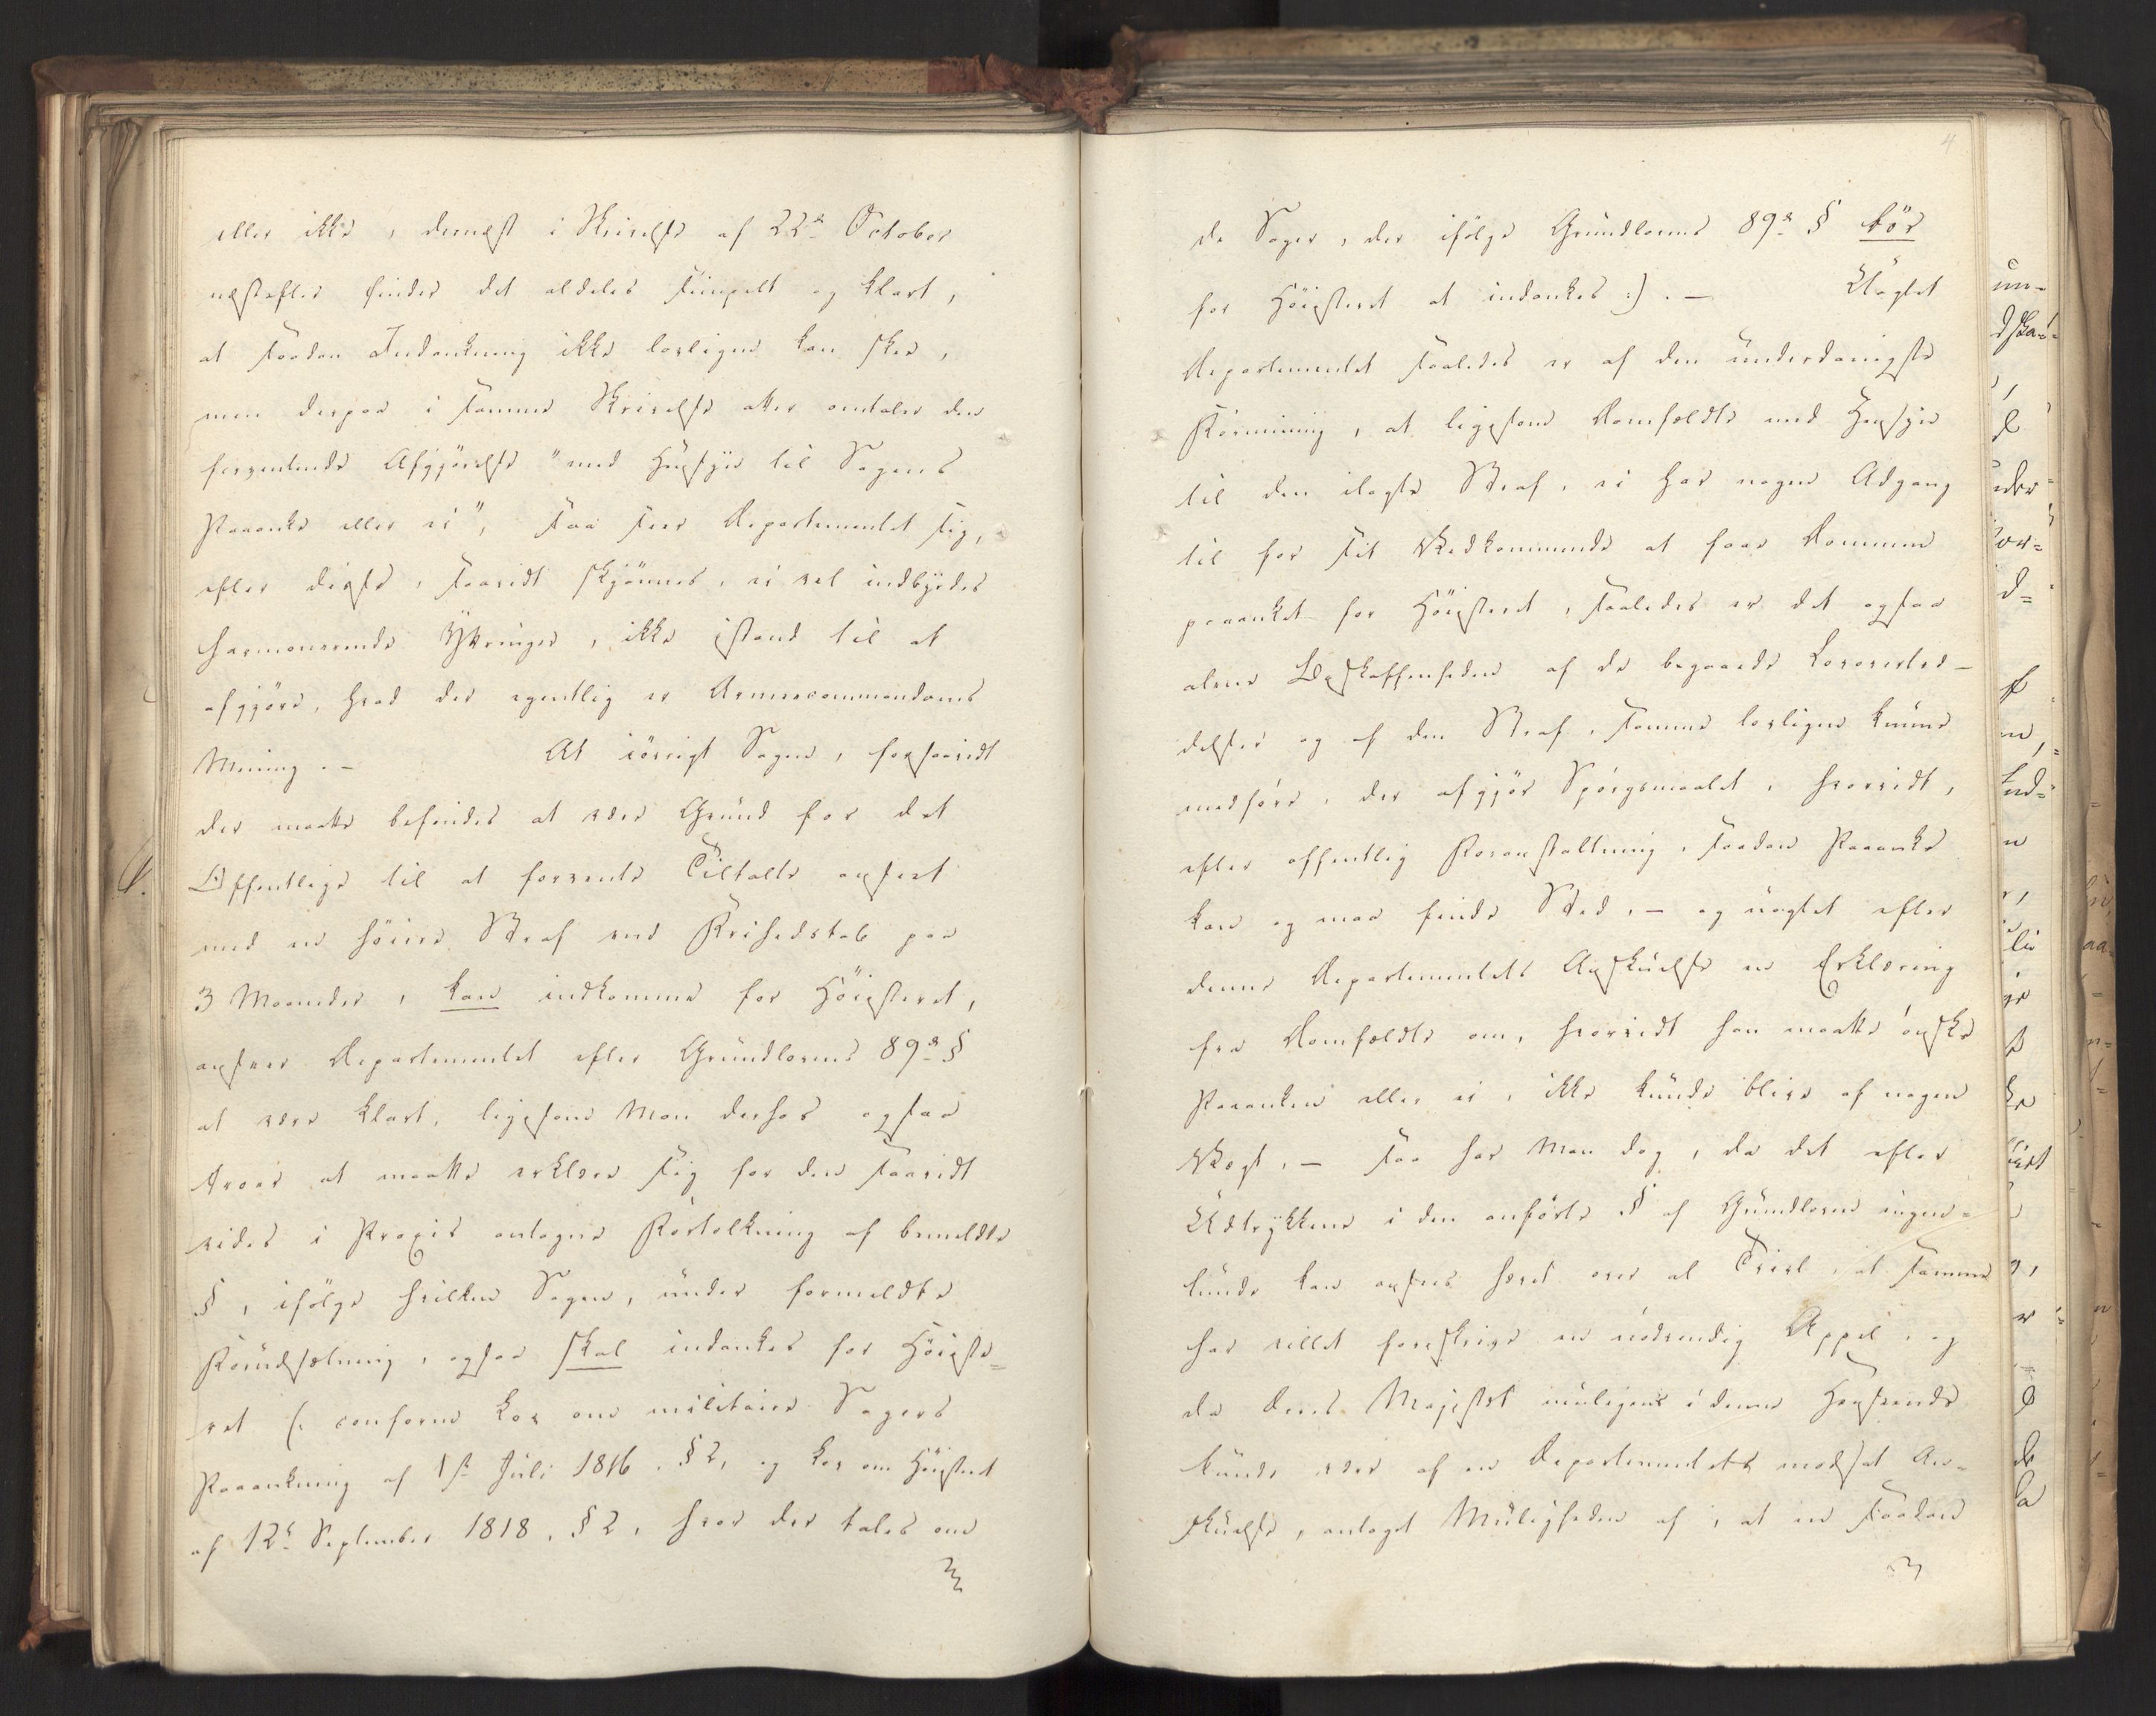 eller ikke, dernæst i Skrivelse af 22de October
næstefter finder det aldeles simpelt og klart,
at saadan Indankning ikke lovligen kan skee,
men derpaa i samme Skrivelse atter omtaler den
forventende Afgjørelse "med Hensyn til Sagens
Paaanke eller ei", saa seer Departementet sig,
efter disse, saavidt skjønnes, ei vel indbyrdes
harmonerende Yttringer, ikke istand til at
afgjøre, hvad der egentlig er Armeecommandoens
Mening. – At iøvrigt Sagen, forsaavidt
der maatte befindes at være Grund for det
Offentlige til at forvente Tiltalte anseet
med en høiere Straf end Frihedstab paa
3 Maaneder, kan indkomme for Høiesteret,
ansees Departementet efter Grundlovens 89de §
at være klart, ligesom Man derhos ogsaa
troer at maatte erklære sig for den saavidt
vides i Praxis antagne Fortolkning af bemeldte
§, ifølge hvilken Sagen, under formeldte
Forudsætning, ogsaa skal indankes for Høieste=
ret (: conform Lov om militaire Sagers
Paaankning af 1ste Juli 1816. § 2, og Lov om Høiesteret
af 12te September 1818. § 2, hvor der tales om
4
de Sager, der ifølge Grundlovens 89de § bør
for Høiesteret at indankes :). – Uagtet
Departementet saaledes er af den underdanigste
Formening, at ligesom Domfældte med Hensyn
til den ilagte Straf, ei har nogen Adgang
til for sit Vedkommende at faae Dommen
paaanket for Høiesteret, saaledes er det ogsaa
alene Beskaffenheden af de begaaede Lovovertræ-
delser og af den Straf, samme lovligen kunne
medføre, der afgjør Spørgsmaalet, hvorvidt,
efter offentlig Foranstaltning, saadan Paaanke
kan og maa finde Sted, – og uagtet efter
denne Departementets Anskuelse en Erklæring
fra Domfældte om, hvorvidt han maatte ønske
Paaanken eller ei, ikke kunde blive af nogen
Vægt, – saa har Man dog, da det efter
Udtrykkene i den anførte § af Grundloven ingen=
lunde kan ansees hævet over al Tvivl, at samme
har villet foreskrive en nødvendig Appel, og
da Deres Majestæt muligens i denne Henseende
kunde være af en Departementets modsat An=
skuelse, antaget Muligheden af, at en saadan